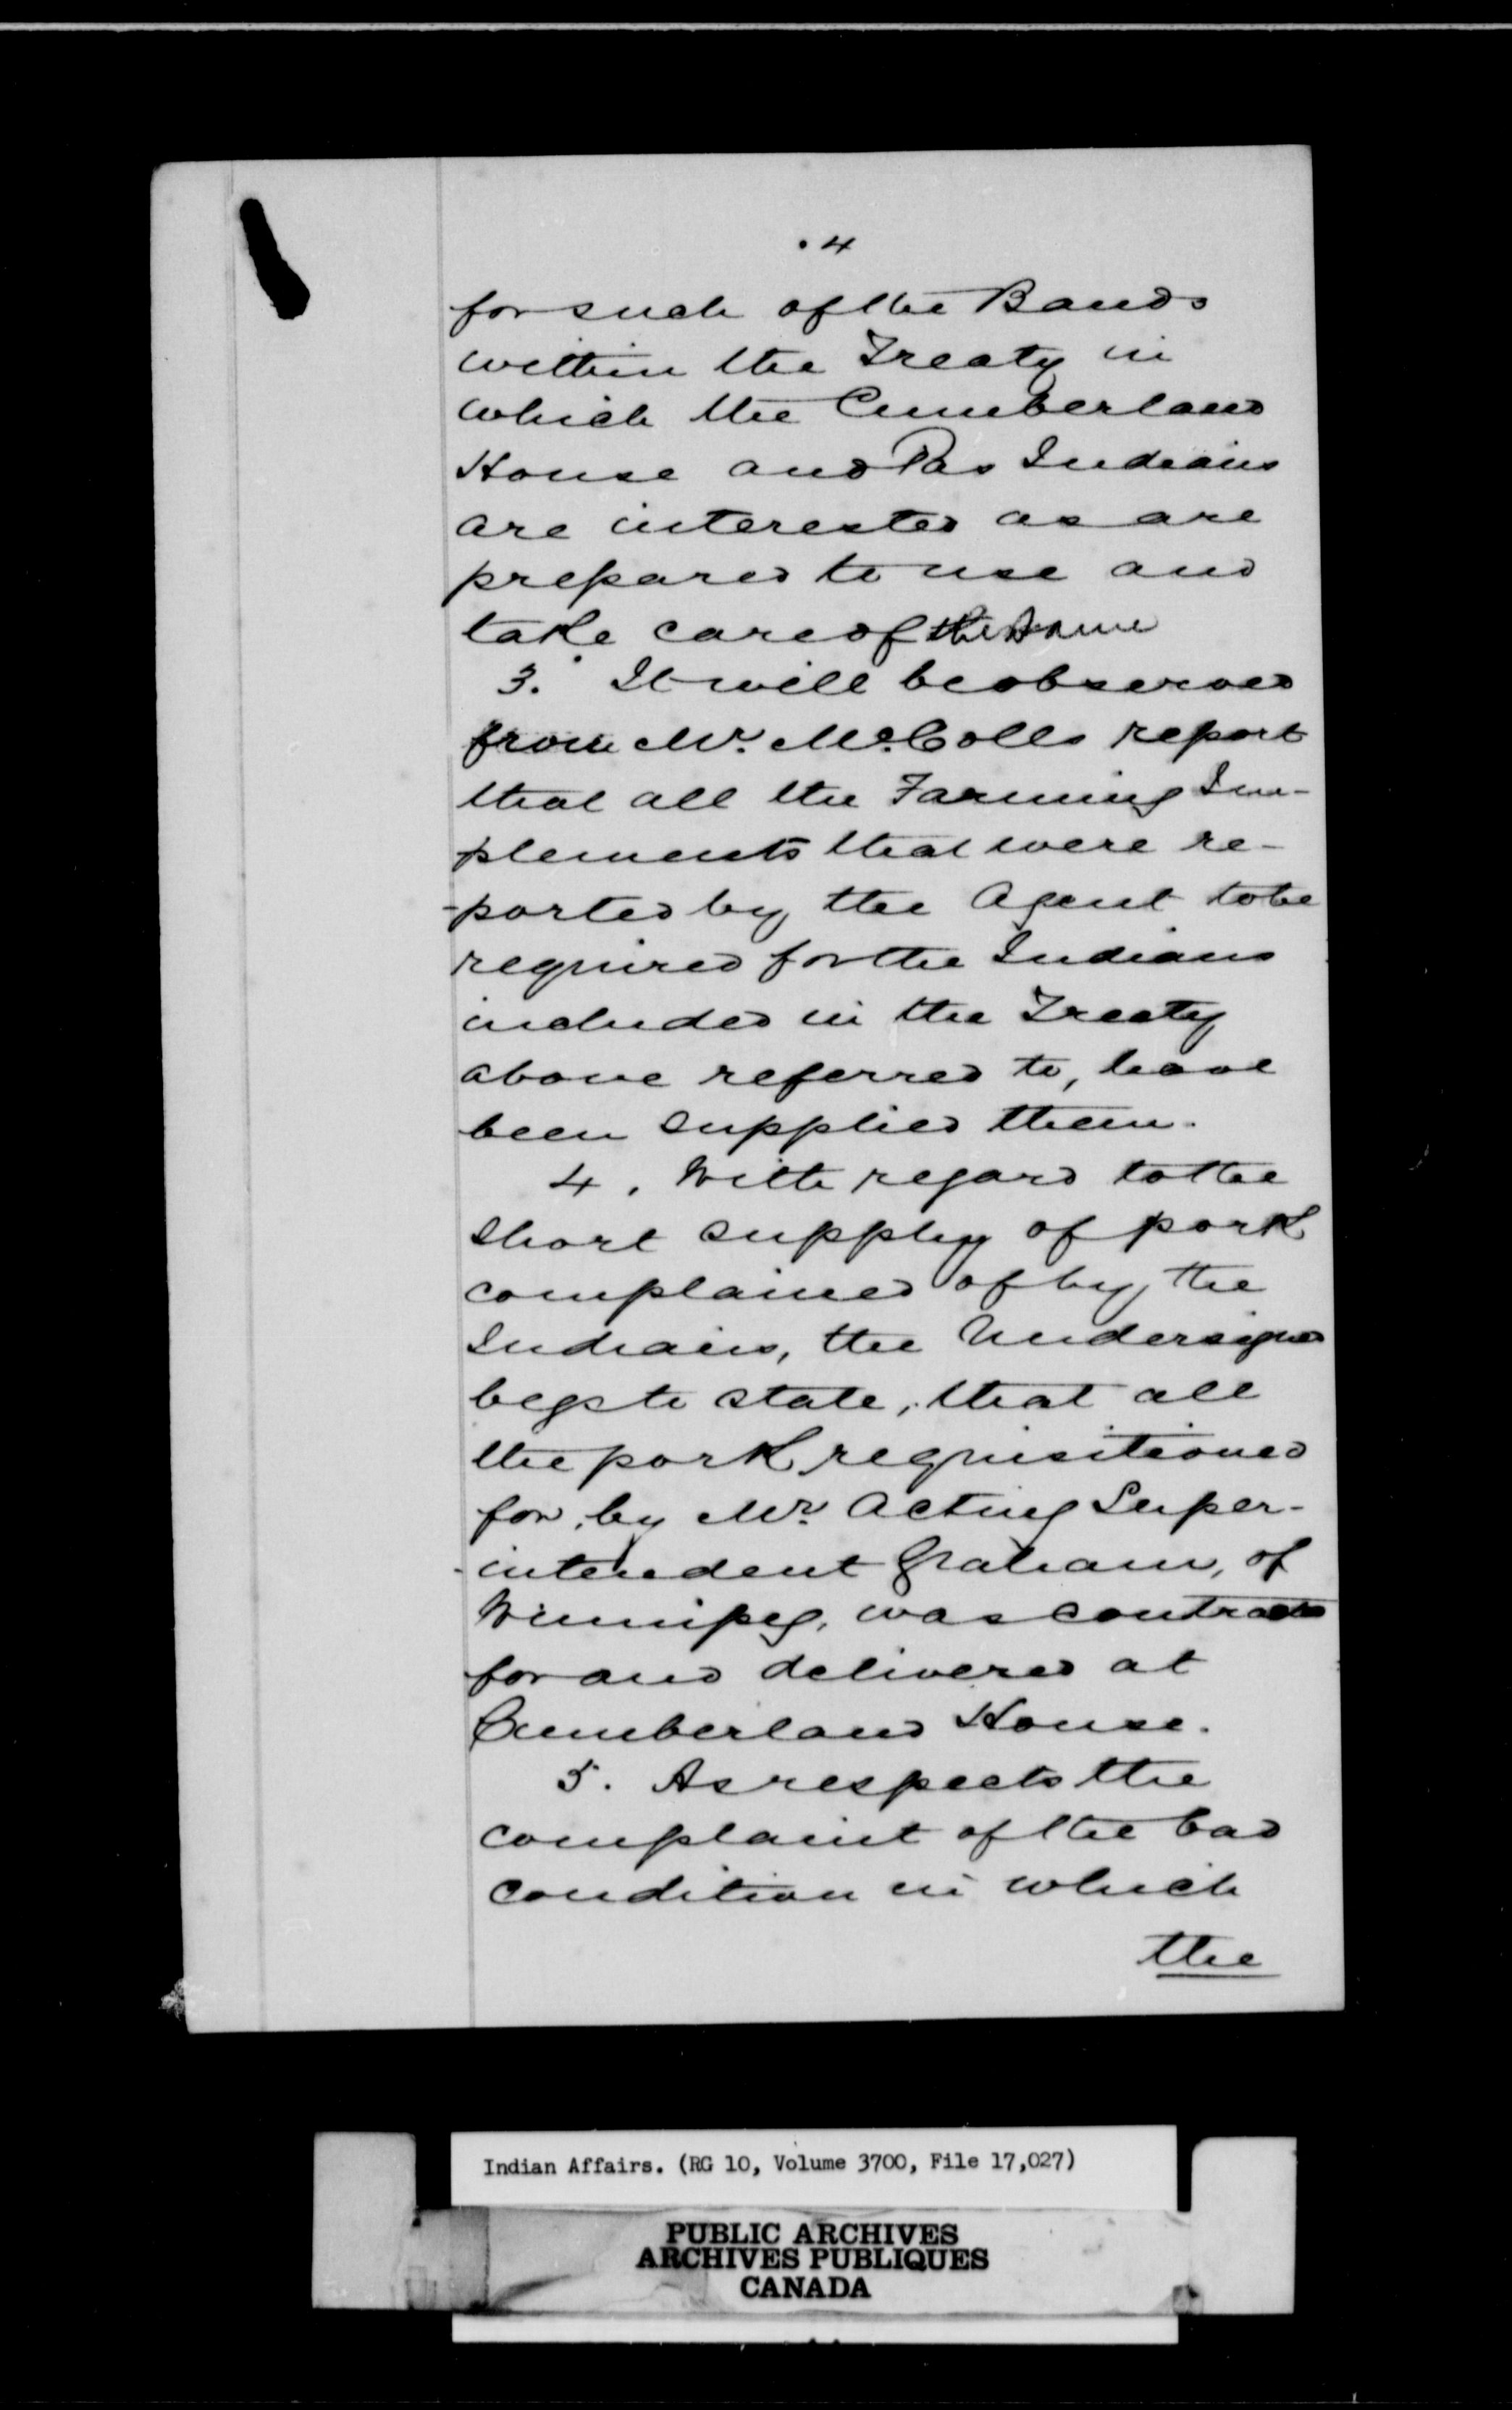 . 4
for such of the Bands
within the Treaty in
which the Cumberland
House and Pas Indians
are interested as are
prepared to use and
take care of the same
3. It will be observed
from Mr. McColls report
that all the Farming Im-
plements that were re-
-ported by the Agent to be
required for the Indians
included in the Treaty
above referred to, have
been supplied them.
4. With regard to the
short supply of pork
complained of by the
Indians, the Undersigned
begs to state, that all
the pork requisitioned
for, by Mr. Acting Super-
-intendent Graham, of
Winnipeg, was contracted
for and delivered at
Cumberland House.
5. As respects the
complaint of the bad
condition in which
the
Indian Affairs. (RG 10, Volume 3700, File 17,027)
PUBLIC ARCHIVES
ARCHIVES PUBLIQUES
CANADA